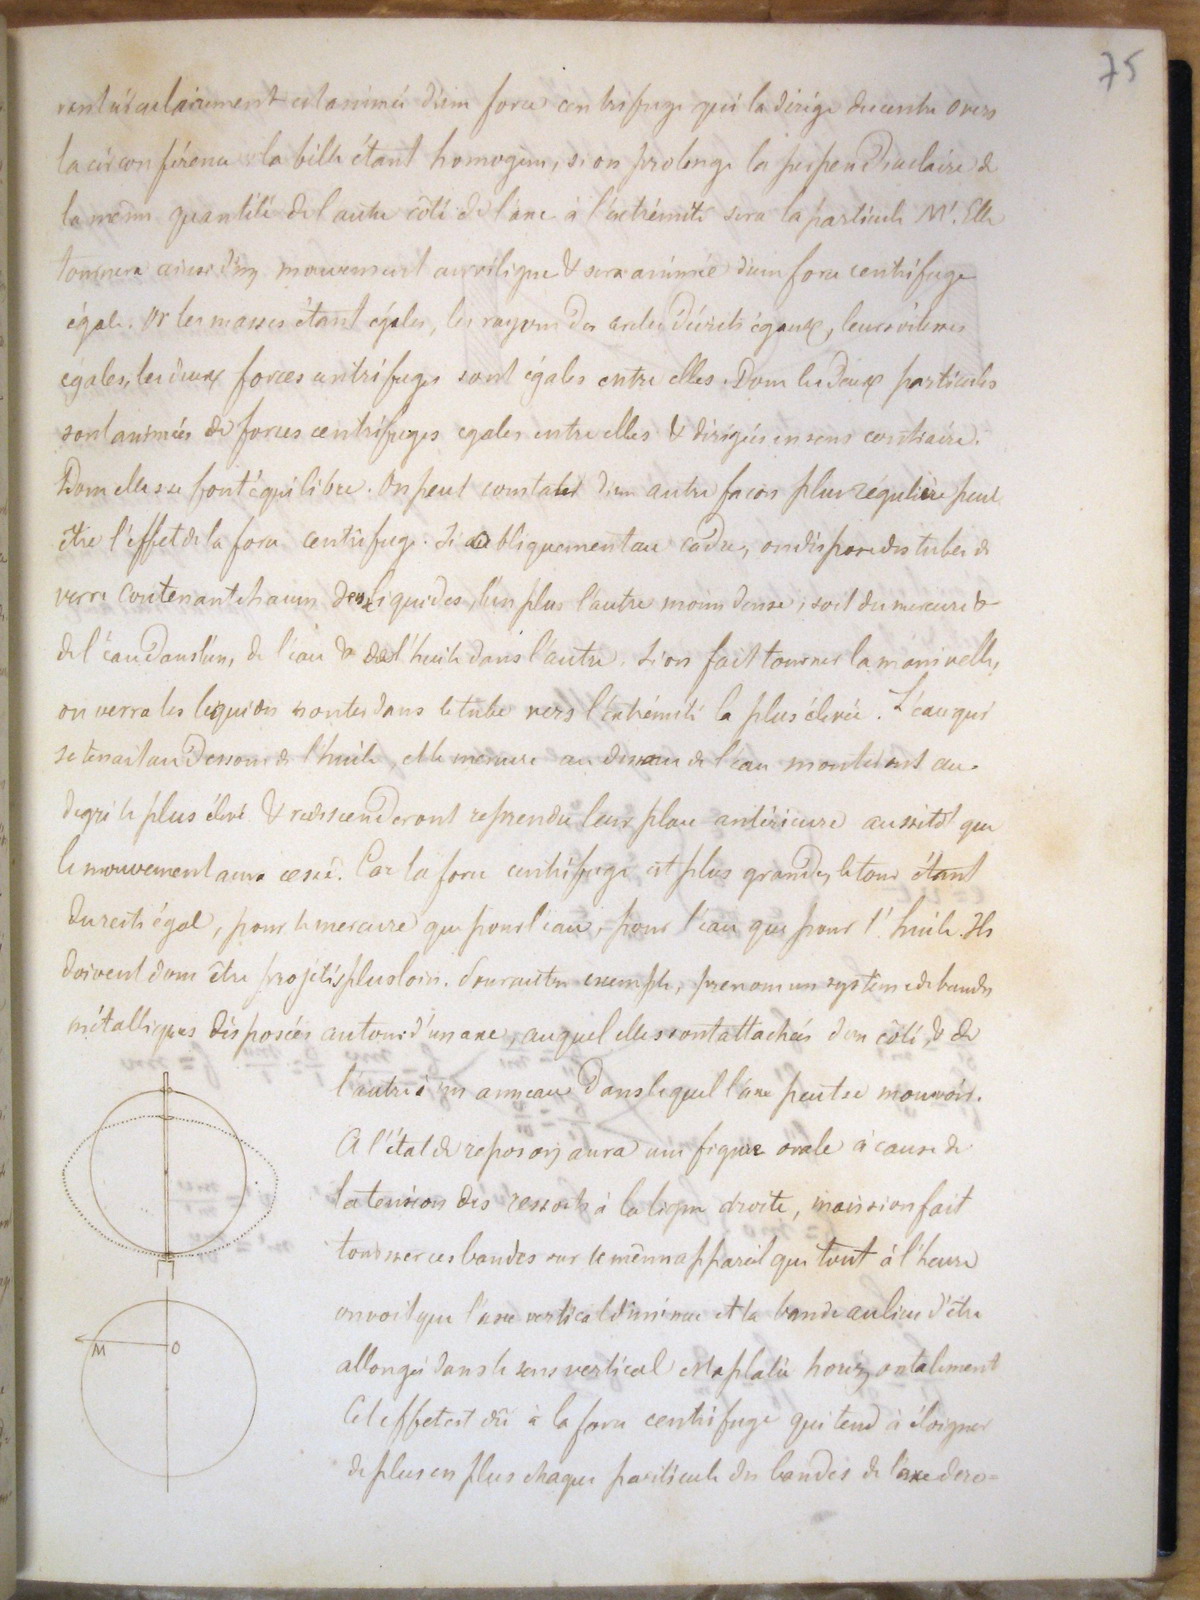 75
vant circulairement est animée d'une force centrifuge qui la dirige du centre O vers
la circonférence la bille étant homogène, si on prolonge la perpendiculaire de
la même quantité de l'autre côté de l'axe à l'extrémité sera la particule M'. Elle
tournera aussi d'un mouvement curviligne & sera animée d'une force centrifuge
égale. Or les masses étant égales, les rayons des cercles décrits égaux, leurs vitesses
égales, les deux forces centrifuges sont égales entre elles. Donc les deux particules
sont animées de forces centrifuges egales entre elles & dirigées en sens contraire.
Donc elles se font équilibre. On peut constater d'une autre façon plus régulière peut
être l'effet de la force centrifuge. Si obliquement au cadre, on dispose des tubes de
verre contenant chacun deux liquides, l'un plus l'autre moins dense, soit du mercure &
de l'eau dans l'un, de l'eau & de l'huile dans l'autre. Si on fait tourner la manivelle,
on verra les liquides monter dans le tube vers l'extrémité la plus élevée. L'eau qui
se tenait au dessous de l'huile, et le mercure au dessous de l'eau monteront au
degré le plus élevé & redescenderont reprendre leur place antérieure aussitôt que
le mouvement aura cessé. Car la force centrifuge est plus grande, le tout étant
du reste égal, pour le mercure que pour l'eau, pour l'eau que pour l'huile. Ils
doivent donc être projetés plus loin. Pour autre exemple, prenons un système de bandes
métalliques disposées autour d'un axe, auquel elles sont attachées d'un côté, & de
l'autre à un anneau dans lequel l'axe peut se mouvoir.
A l'état de repos on aura une figure ovale à cause de
la tension des ressorts à la ligne droite, mais si on fait
tourner ces bandes sur le même appareil que tout à l'heure
on voit que l'axe vertical diminue et la bande au lieu d'être
allongée dans le sens vertical est aplatie horizontalement
Cet effet est dû à la force centrifuge qui tend à éloigner
de plus en plus chaque particule des bandes de l'axe de ro=
M O